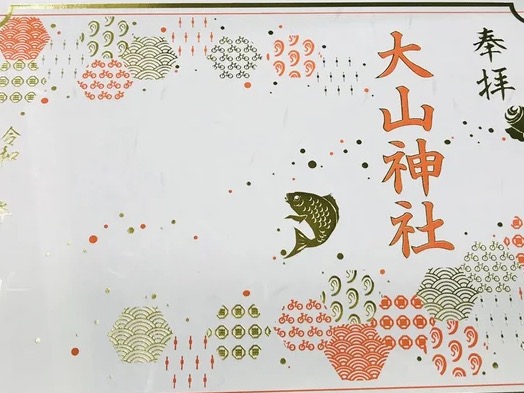 奉拝
大山神社
令和